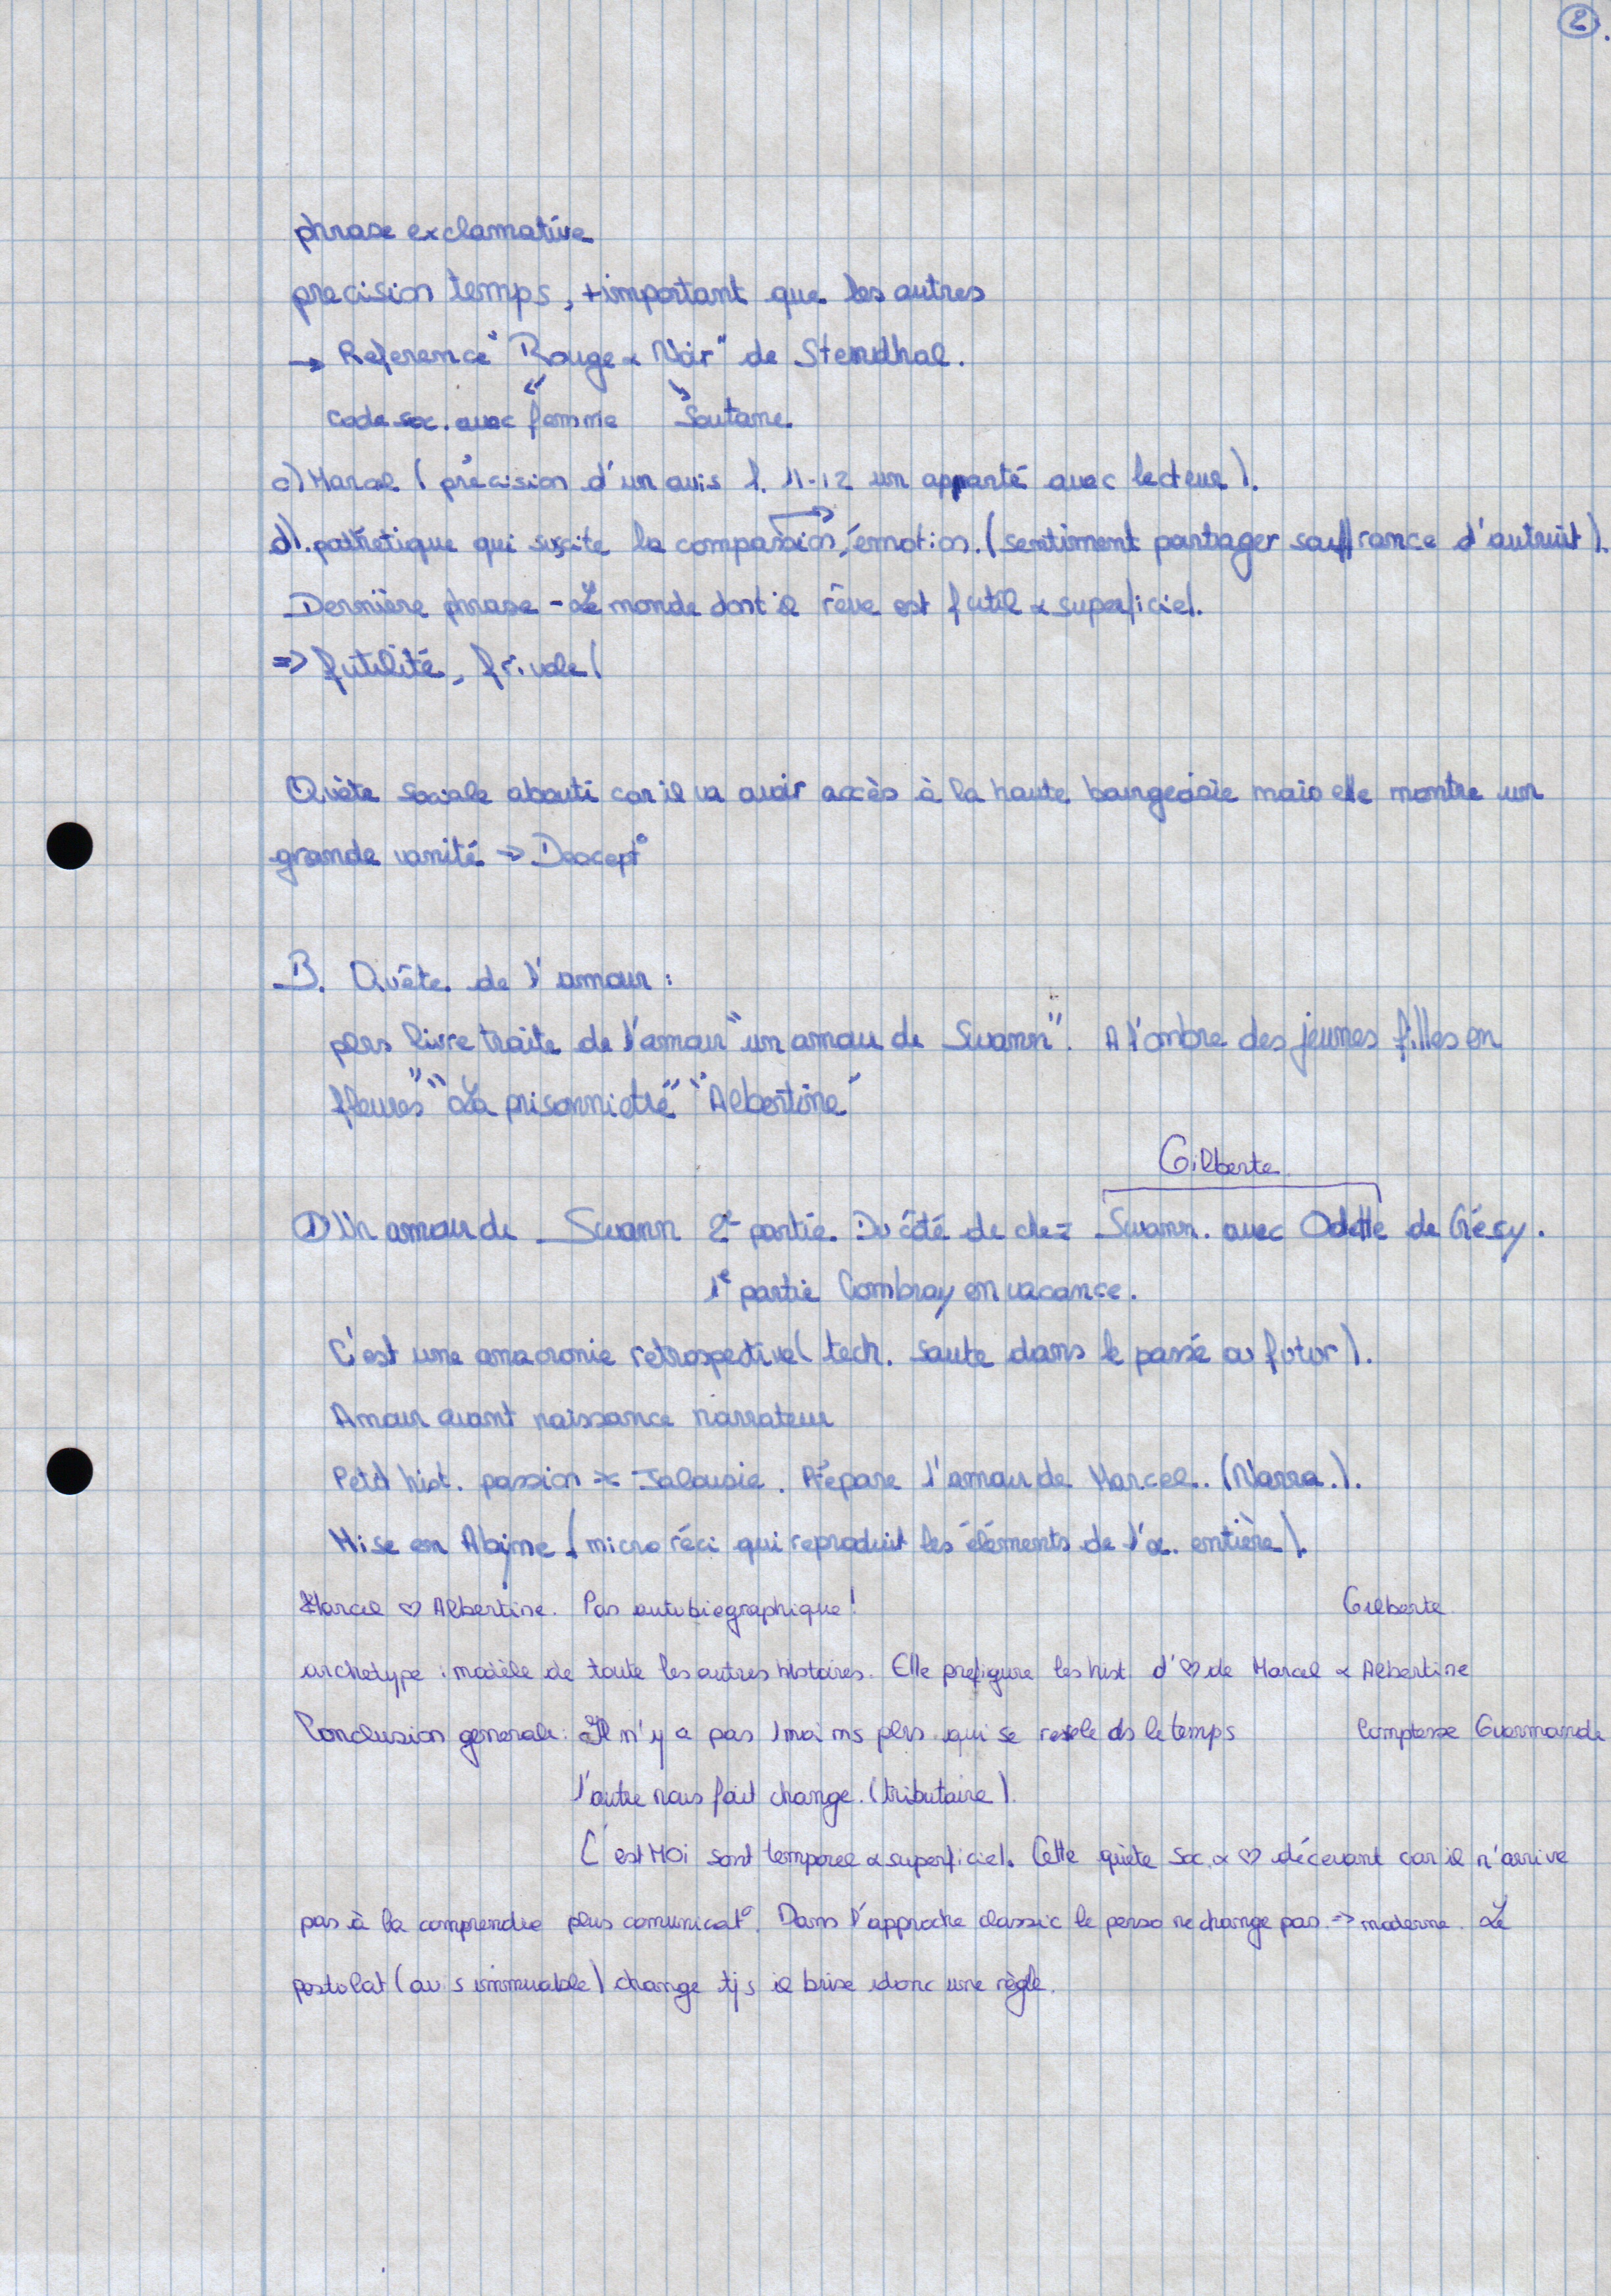 2.
phrase exclamative
precision temps, + important que les autres
→ Reference "Rouge & Noir" de Stendhal.
code soc. avec femme Soutane
c) Marcel (précision d'un avis l. 11-12 un apparté avec lecteur).
d). pathétique qui suscite la compassion, émotion. (sentiment partager souffrance d'autruit).
Dernière phrase - Le monde dont il rêve est futil & superficiel.
=> futilité, frivole (
Quète sociale abouti car il va avoir accès à la haute bourgeoisie mais elle montre un
grande vanité => Decept°
B. Quête de l'amour :
plrs livre traite de l'amour "un amour de Swann". A l'ombre des jeunes filles en
fleures" "La prisonnière" "Albertine"
Gilberte
① Un amour de Swann 2e partie. Du côté de chez Swann. avec Odette de Crésy.
1e partie Combray en vacance.
C'est une anacronie retrospective (tech. saute dans le passé ou futur).
Amour avant naissance narrateur
Petit hist. passion Jalousie. Prépare l'amour de Marcel. (Narra.).
Mise en Abîme (micro réci qui reproduit les éléments de l'œ. entière).
Marcel ♡ Albertine. Pas autobiographique! Gilberte
archetype : modèle de toute les autres histoires. Elle prefigure les hist d'♡ de Marcel & Albertine
Conclusion generale : Il n'y a pas 1 moi ms plrs qui se revele ds le temps Comptesse Guermande
l'autre nous fait change. (tributaire).
C'est MOI sont temporel & superficiel. Cette quète soc. & ♡ décevant car il n'arrive
pas à la comprendre plus comunicat°. Dans l'approche classic le perso ne change pas => moderne. Le
postolat (avis immuable) change tjs il brise donc une règle.